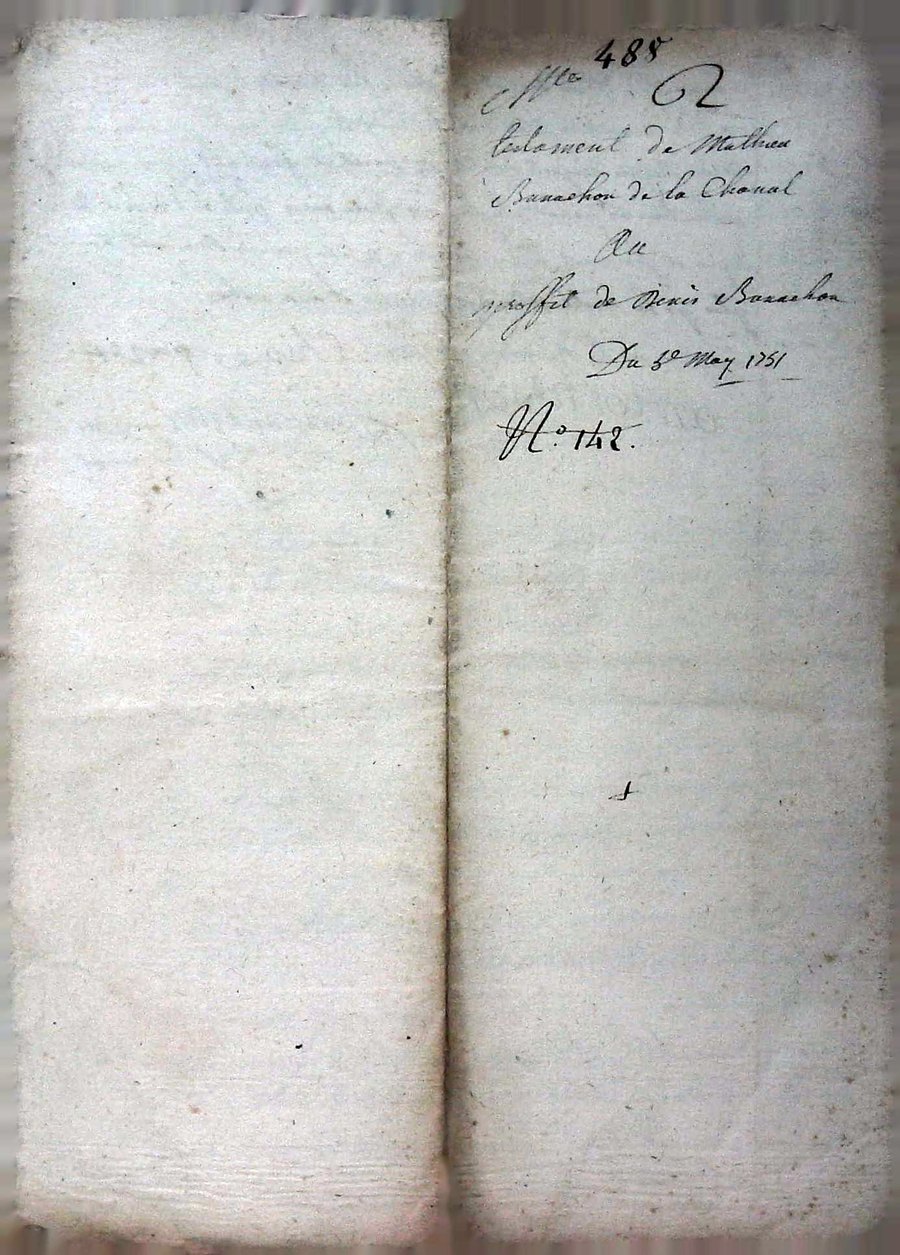 488
2
testament de Mathieu
Banachon de la Chanal
Au
proffit de Denis Banachon
Du 5e May 1751
No. 142.